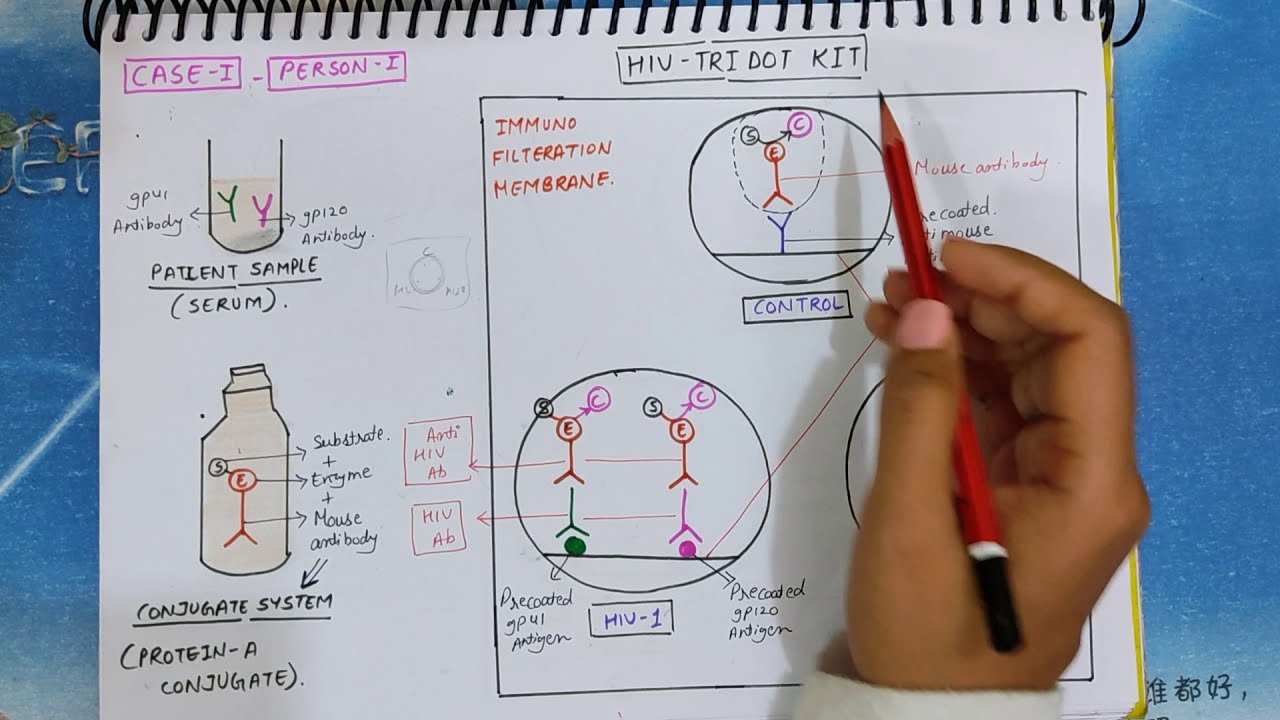 HIV-TRI DOT KIT
CASE-I - PERSON-I
IMMUNO
FILTERATION
MEMBRANE.
S
C
E
Mouse antibody.
mouse
CONTROL
gp41
Antibody
gp120
Antibody.
PATIENT SAMPLE
(SERUM).
C
S
E
Substrate.
+
Enzyme
+
Mouse
antibody
CONJUGATE SYSTEM
(PROTEIN-A
CONJUGATE).
Anti
HIV
Ab
HIV
Ab
S
C
E
S
C
E
Precoated
gp41
Antigen
HIV-1
Precoated
gp120
Antigen
准都好,